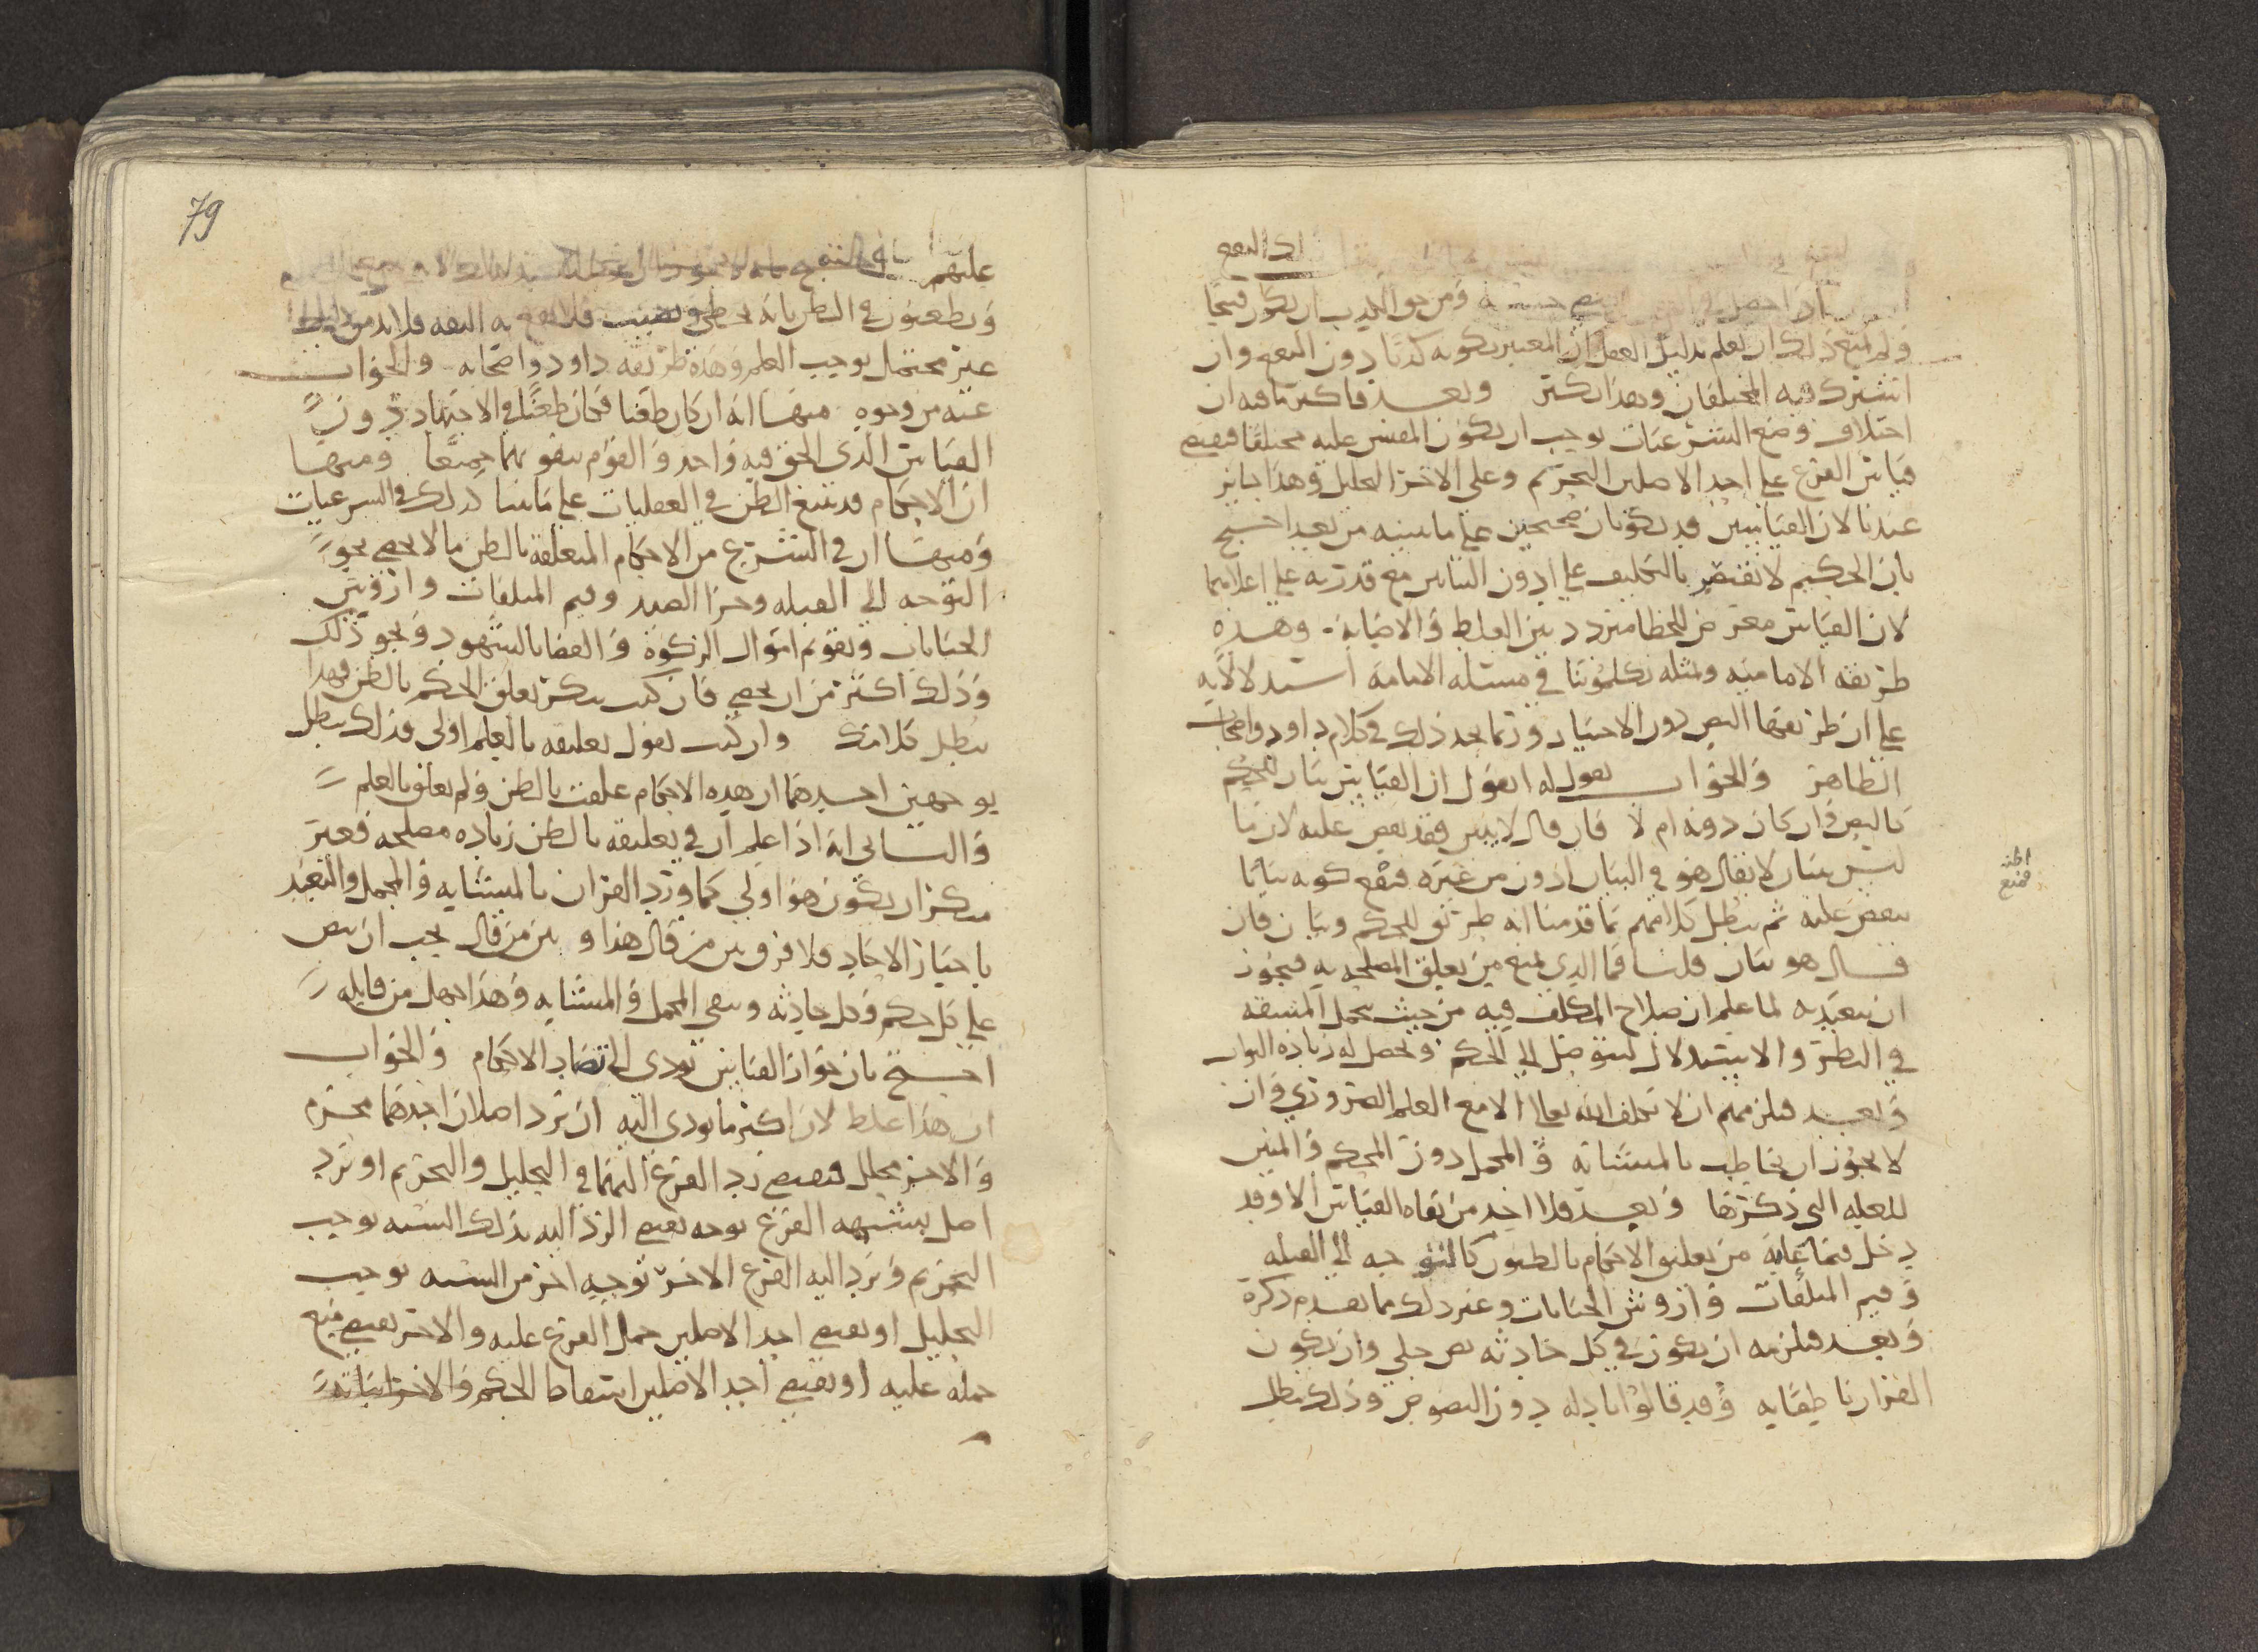 اذ النفع
اذا حصل فيه ومن حق الكذب ان يكون قبيحا
ولم يمنع ذلك ان نعلم بدليل العقل ان المعتبر بكونه كذبا دون النفع وان
اشترك فيه المختلفان وهذا يكثر وبعد فاكثر ما فيه ان
اختلاف وضع الشرعيات يوجب ان يكون المقيس عليه مختلفا فيقتضي
قياس الفرع على احد الاصلين التحريم وعلى الاخر التحليل وهذا جايز
عندنا لان القياسين قد يكونان صحيحين على ما نبينه من بعد احتج
بان الحكيم لا يقتصر بالتكليف على ادون البيانين مع قدرته على اعلاهما
لان القياس معترض للخطا متردد بين الغلط والاصابة وهذه
طريقه الاماميه ولمثله تكلموننا في مسئله الامامة استدلالا به
على ان طريقها النص دون الاختيار وربما نجد ذلك في كلام داود واصحاب
الظاهر والجواب نقول له اتقول ان القياس بيان للحكم
كالنص وان كان دونه ام لا فان قال لا يبين فقد نقض عليه لان ما
ليس ببيان لا يقال هو في البيان ادون من غيره فنفع كونه بيانا
اظنه
فمنع
ينقض عليه ثم يبطل كلامهم بما قدمنا انه طريق للحكم وبيان فان
قال هو بيان قلنا فما الذي يمنع من تعليق المصلحه به فيجوز
ان يتعبد به لما علم ان صلاح المكلف فيه من حيث يحمل المشقه
في النظر والاستدلال ليتوصل الى الحكم ويحصل له زيادة الثواب
وبعد فيلزمهم ان لا يكلف الله تعالى الا مع العلم الضروري وان
لا يجوز ان يخاطب بالمتشابه والمجمل دون المحكم والمبين
للعله التي ذكرها وبعد فلا احد من نفاة القياس الا وقد
دخل فيما عابه من تعليق الاحكام بالظنون كالتوجه الى القبله
وقيم المتلفات وازوش الجنايات وغير ذلك مما تقدم ذكره
وبعد فيلزمه ان يكون في كل حادثه نص جلي وان يكون
القران ناطقا به وقد قالوا بادله دون النصوص وذلك يبطل
79
عليهم
ويطعنون في الظن بانه يخطي ويصيب فلا يقع به الثقه فلا بد من دليل
غير محتمل يوجب العلم وهذه طريقه داود واصحابه والجواب
عنه من وجوه منها انه ان كان طعنا فكان طعنا في الاجتهاد دون
القياس الذي الحق فيه واحد والقوم ينفونهما جميعا ومنها
ان الاحكام قد تتبع الظن في العقليات على ما بينا كذلك في الشرعيات
ومنها ان في الشرع من الاحكام المتعلقة بالظن ما لا يحصى نحو
التوجه الى القبله وجزا الصيد وقيم المتلفات وازوش
الجنايات وتقويم اموال الزكوة والقضا بالشهود ونحو ذلك
وذلك اكثر من ان يحصى فان كنت تنكر تعلق الحكم بالظن فهذا
يبطل كلامك وان كنت تقول تعليقه بالعلم اولى فذلك يبطل
بوجهين احدهما ان هذه الاحكام علقت بالظن ولم يعلق بالعلم
والثاني انه اذا علم ان في تعليقه بالظن زياده مصلحه فغير
منكر ان يكون هو اولى كما ورد القران بالمتشابه والمجمل والتعبد
باخبار الاحاد فلا فرق بين من قال هذا وبين من قال يجب ان ينص
على كل حكم وكل حادثه وينفي المجمل والمتشابه وهذا جهل من قايله
احتج بان جواز القياس يودي الى تضاد الاحكام والجواب
ان هذا غلط لان اكثر ما يودي اليه ان يرد اصلان احدهما محرم
والاخر محلل فيقتضي رد الفرع اليهما في التحليل والتحريم او يرد
اصل يشبهه الفرع بوجه يقتضي الرد اليه بذلك الشبه يوجب
التحريم ويرد اليه الفرع الاخر بوجه اخر من الشبه يوجب
التحليل او يقتضي احد الاصلين حمل الفرع عليه والاخر يقتضي منع
حمله عليه او يقتضي احد الاصلين اسقاط الحكم والاخر اثباته